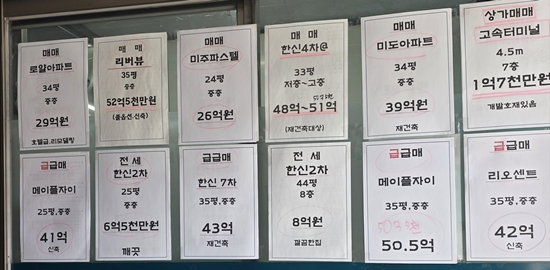 매매
로얄아파트
34평
중층
29억원
호텔급.리모델링
매 매
리버뷰
35평
중층
52억5천만원
(풀옵션.신축)
매매
미주파스텔
24평
중층
26억원
매 매
한신4차@
33평
저층~고층
48억~51억
(재건축대상)
매매
미도아파트
34평
중층
39억원
재건축
상가매매
고속터미널
4.5m
7층
1억7천만원
개발호재있음
급급매
메이플자이
25평,중층
41억
신축
전 세
한신2차
25평
중층
6억5천만원
깨끗
급급매
한신 7차
35평,중층
43억
재건축
전 세
한신2차
44평
8층
8억원
깔끔한집
급급매
메이플자이
35평,중층
50.5억
신축
급급매
리오센트
35평,중층
42억
신축